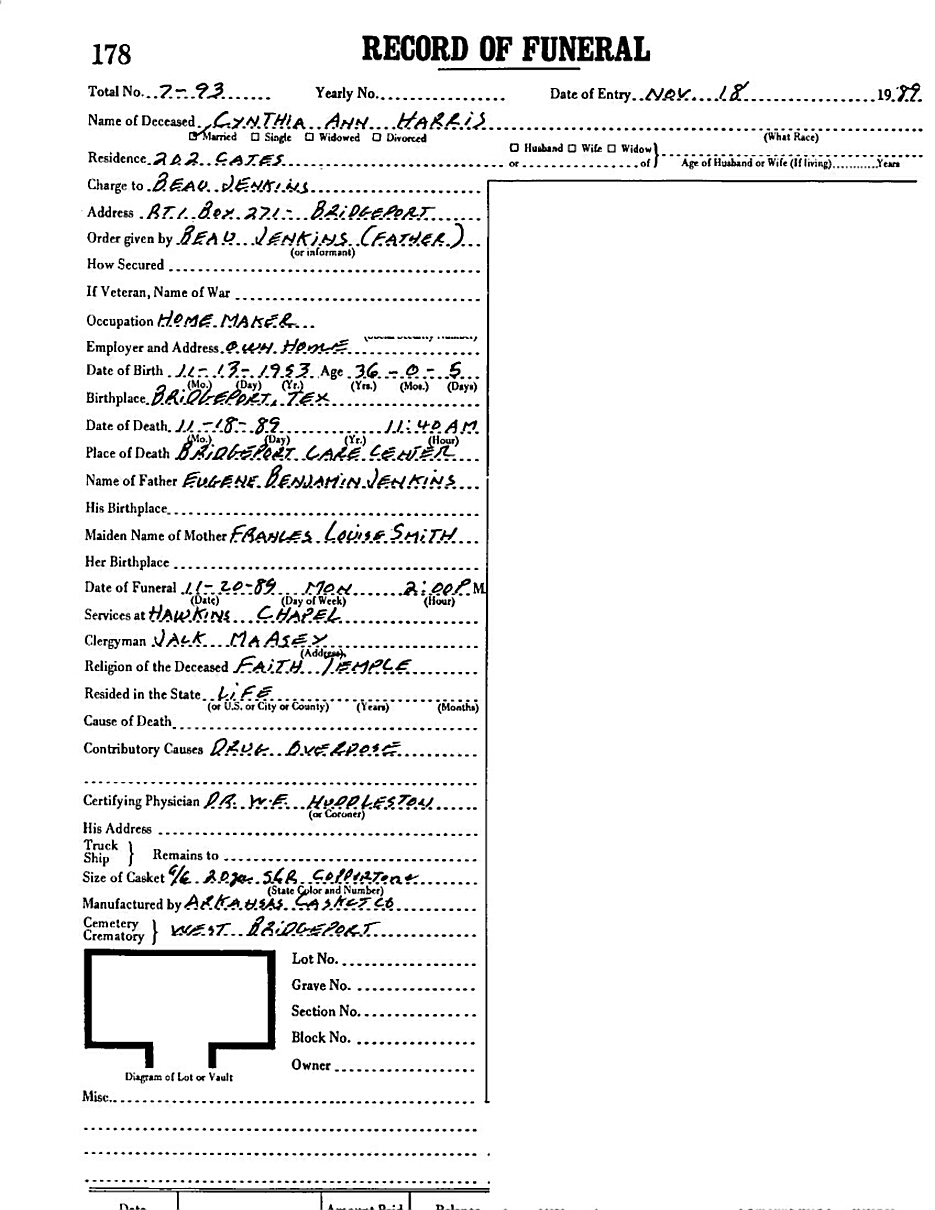 178 RECORD OF FUNERAL
Total No. 7-93 Yearly No. Date of Entry NOV 18 19 89
Name of Deceased CYNTHIA ANN HARRIS
☑ Married ☐ Single ☐ Widowed ☐ Divorced (What Race)
Residence 202 CATES ☐ Husband ☐ Wife ☐ Widow} or of Age of Husband or Wife (If living) Years
Charge to BEAU JENKINS
Address RT.1 Box 271- BRIDGEPORT
Order given by BEAU JENKINS (FATHER)
(or informant)
How Secured
If Veteran, Name of War
Occupation HOME MAKER
Employer and Address OWN HOME
Date of Birth 11-13-1953 Age 36-0-5
(Mo.) (Day) (Yr.) (Yrs.) (Mos.) (Days)
Birthplace BRIDGEPORT, TEX
Date of Death 11-18-89 11:40 AM
(Mo.) (Day) (Yr.) (Hour)
Place of Death BRIDGEPORT CARE CENTER
Name of Father EUGENE BENJAMIN JENKINS
His Birthplace
Maiden Name of Mother FRANCES LOUISE SMITH
Her Birthplace
Date of Funeral 11-20-89 MON 2:00 P M
(Date) (Day of Week) (Hour)
Services at HAWKINS CHAPEL
Clergyman JACK MAASEY
(Address)
Religion of the Deceased FAITH TEMPLE
Resided in the State LIFE
(or U.S. or City or County) (Years) (Months)
Cause of Death
Contributory Causes DRUG OVERDOSE
Certifying Physician DR. W.E. HUDDLESTON
(or Coroner)
His Address
Truck
Ship } Remains to
Size of Casket 6/6 20ga SLR COPPERTONE
(State Color and Number)
Manufactured by ARKANSAS CASKET CO
Cemetery
Crematory } WEST BRIDGEPORT
Lot No.
Grave No.
Section No.
Block No.
Owner
Diagram of Lot or Vault
Misc.
Date Amount Paid Balance